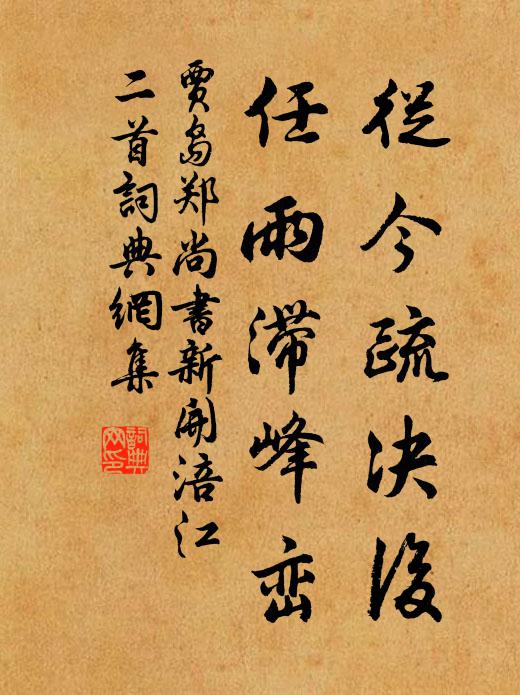 從今疏決後
任雨滯峰峦
賈島郑尚書新開涪江
二首詞典網集
詞典
网印